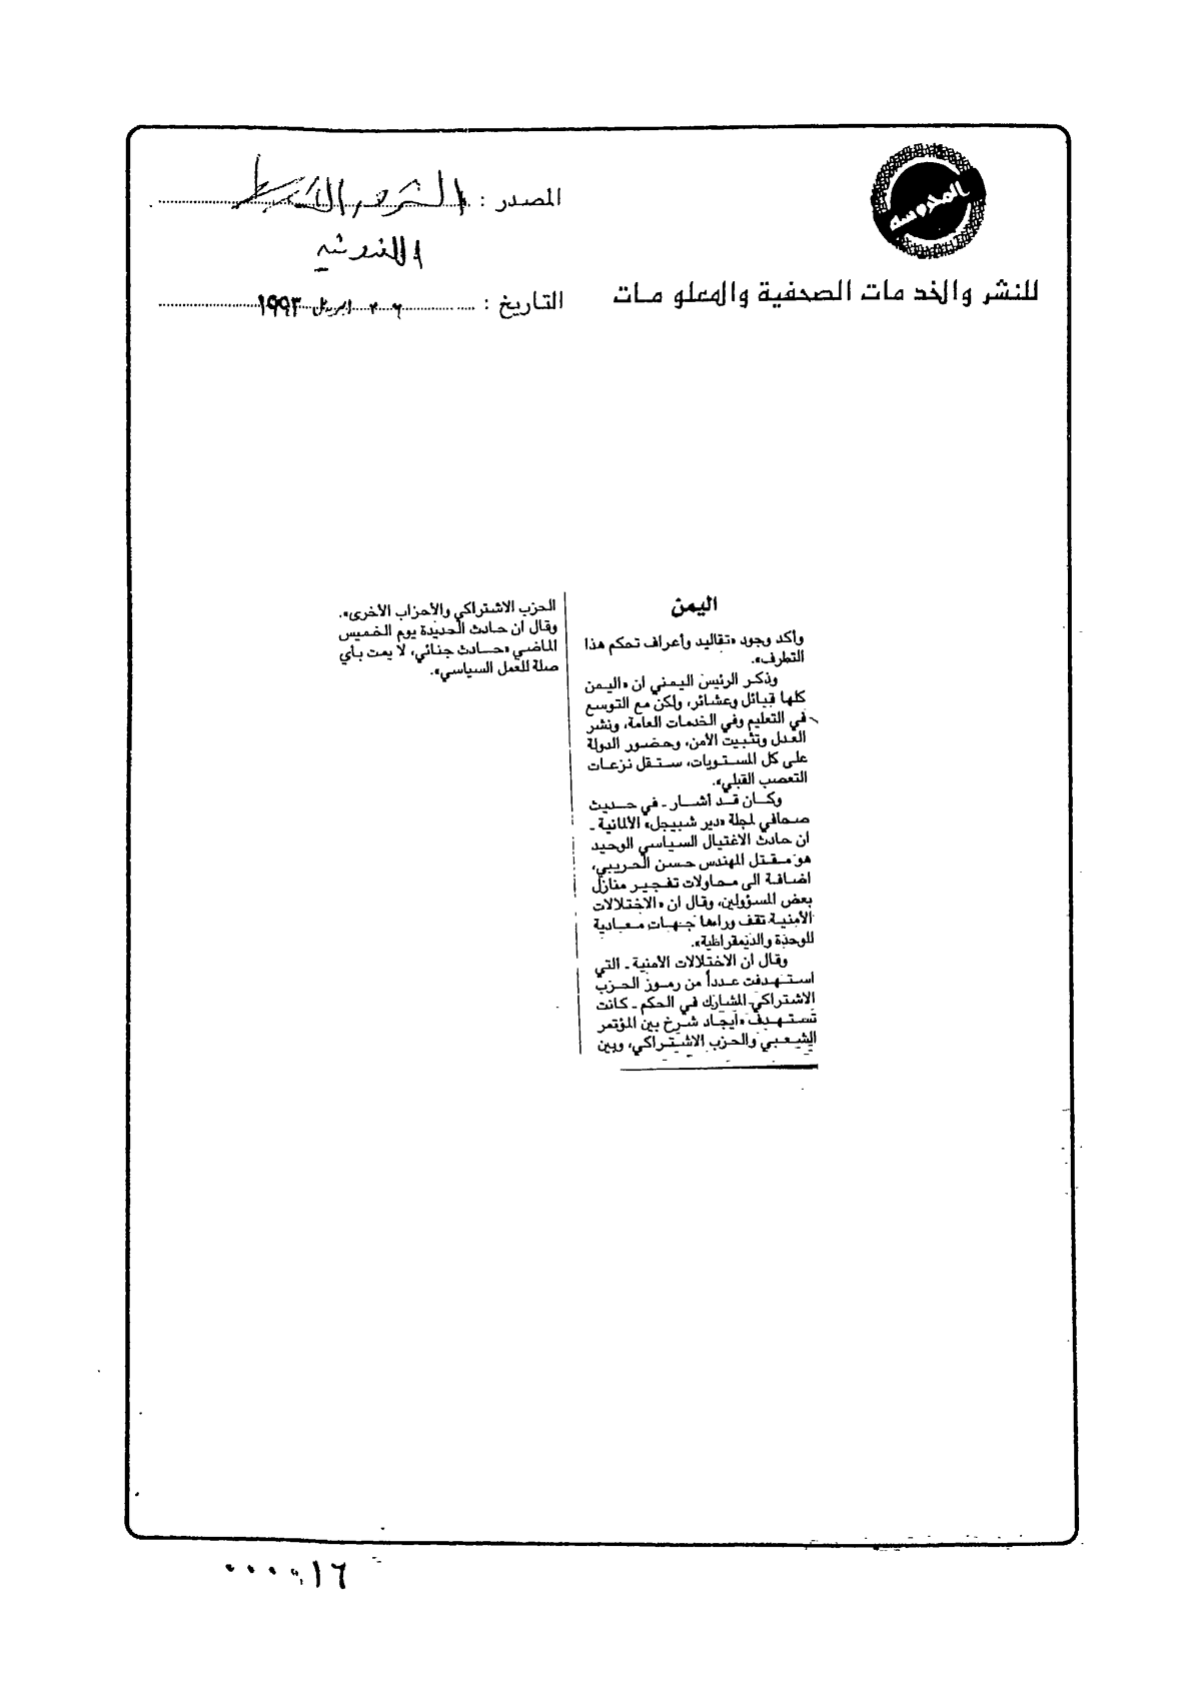 المدروسه
للنشر والخدمات الصحفية والمعلومات
المصدر : الشرق الأوسط
اللندنيه
التاريخ : ٢٦ ابريل ١٩٩٣
اليمن
وأكد وجود «تقاليد وأعراف تحكم هذا
التطرف».
وذكر الرئيس اليمني ان «اليمن
كلها قبائل وعشائر، ولكن مع التوسع
في التعليم وفي الخدمات العامة، ونشر
العدل وتثبيت الأمن، وحضور الدولة
على كل المستويات، ستقل نزعات
التعصب القبلي».
وكان قد أشار - في حديث
صحافي لمجلة «دير شبيجل» الألمانية -
ان حادث الاغتيال السياسي الوحيد
هو مقتل المهندس حسن الحريبي،
اضافة الى محاولات تفجير منازل
بعض المسؤولين، وقال ان «الاختلالات
الأمنية تقف وراءها جهات معادية
للوحدة والديمقراطية».
وقال ان الاختلالات الأمنية - التي
استهدفت عدداً من رموز الحزب
الاشتراكي المشارك في الحكم - كانت
تستهدف «ايجاد شرخ بين المؤتمر
الشعبي والحزب الاشتراكي، وبين
الحزب الاشتراكي والأحزاب الأخرى».
وقال ان حادث الحديدة يوم الخميس
الماضي «حادث جنائي، لا يمت بأي
صلة للعمل السياسي».